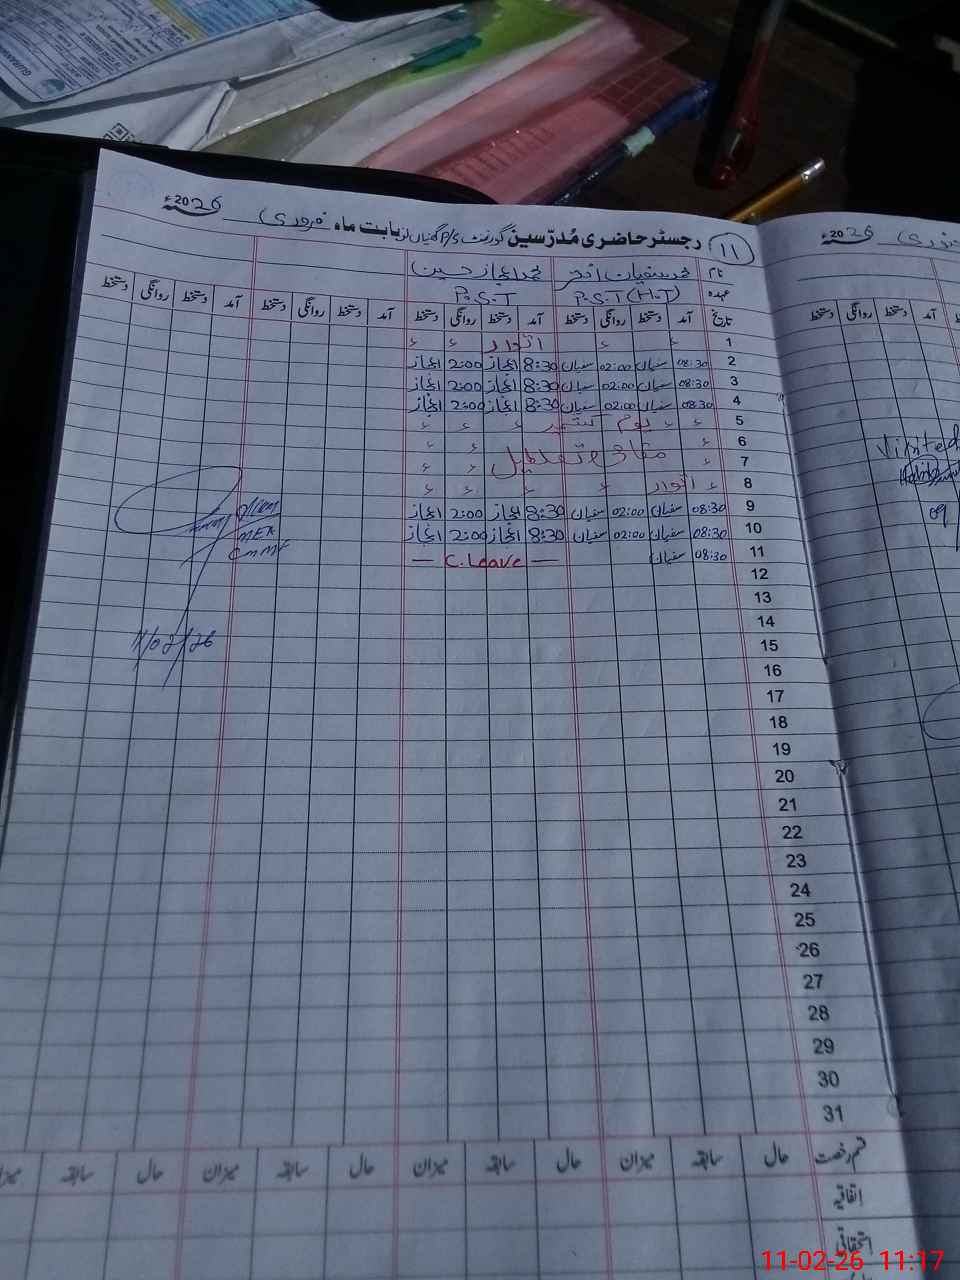 رجسٹر حاضری مُدرّسین گورنمنٹ P/S بابت ماہ فروری 2026ء
۱۱
نام محمد سفیان محمد اعجاز حسین
عہدہ P.S.T (H.T) P.S.T
تاریخ آمد دستخط روانگی دستخط آمد دستخط روانگی دستخط آمد دستخط روانگی دستخط آمد دستخط روانگی دستخط
1 اتوار
2 08:30 سفیان 02:00 سفیان 8:30 اعجاز 2:00 اعجاز
3 08:30 سفیان 02:00 سفیان 8:30 اعجاز 2:00 اعجاز
4 08:30 سفیان 02:00 سفیان 8:30 اعجاز 2:00 اعجاز
5 یوم کشمیر
6
7 مقامی تعطیل
8 اتوار
9 08:30 سفیان 02:00 سفیان 8:30 اعجاز 2:00 اعجاز
10 08:30 سفیان 02:00 سفیان 8:30 اعجاز 2:00 اعجاز
11 08:30 سفیان — C.Leave —
MEA
11/02/26
12
13
14
15
16
17
18
19
20
21
22
23
24
25
26
27
28
29
30
31
قسم رخصت حال سابقہ میزان حال سابقہ میزان حال سابقہ میزان حال سابقہ میزان
اتفاقیہ
استحقاقی
2026ء
آمد دستخط روانگی دستخط
Visited
09
11-02-26 11:17